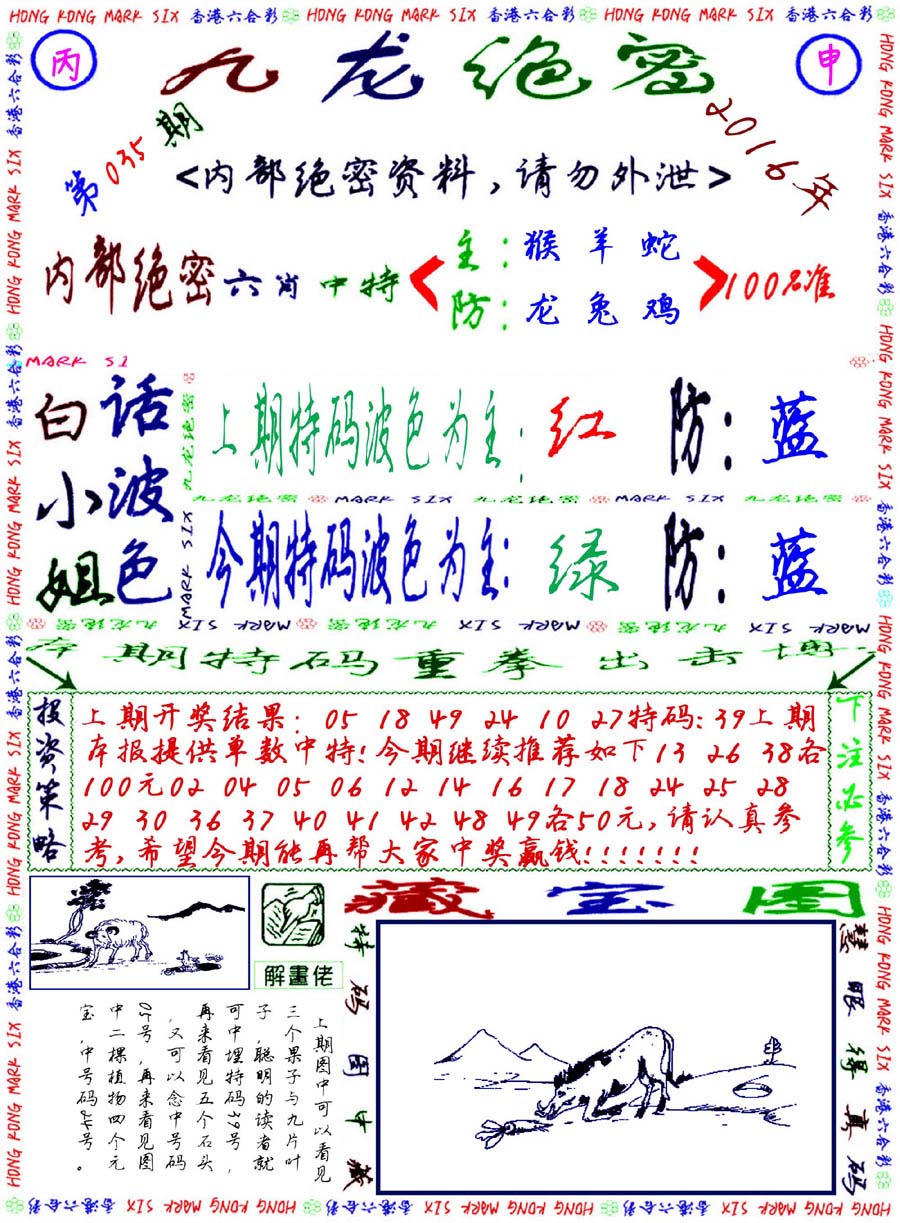 HONG KONG MARK SIX 香港六合彩 HONG KONG MARK SIX 香港六合彩 HONG KONG MARK SIX 香港六合彩
丙
九龙绝密
申
第035期
2016年
<内部绝密资料,请勿外泄>
内部绝密六肖中特
主:猴羊蛇
防:龙兔鸡
100%准
MARK SI
白话小波姐色
上期特码波色为主:红 防:蓝
九龙绝密 MARK SIX 九龙绝密 MARK SIX 九龙绝密
今期特码波色为主:绿 防:蓝
MARK SIX 九龙绝密 MARK SIX 九龙绝密 MARK SIX 九龙绝密
本期特码重拳出击博
投资策略
上期开奖结果: 05 18 49 24 10 27特码:39上期
本报提供单数中特!今期继续推荐如下13 26 38各
100元02 04 05 06 12 14 16 17 18 24 25 28
29 30 36 37 40 41 42 48 49各50元,请认真参
考,希望今期能再帮大家中奖赢钱!!!!!!!
下注必参
藏宝图
解畫佬
上期图中可以看见
三个果子与九片叶
子,聪明的读者就
可中埋特码39号,
再来看见五个石头
,又可以念中号码
05号,再来看见图
中二棵植物四个元
宝,中号码24号。
特码图中藏
慧眼缘真码
HONG KONG MARK SIX 香港六合彩 HONG KONG MARK SIX 香港六合彩 HONG KONG MARK SIX 香港六合彩